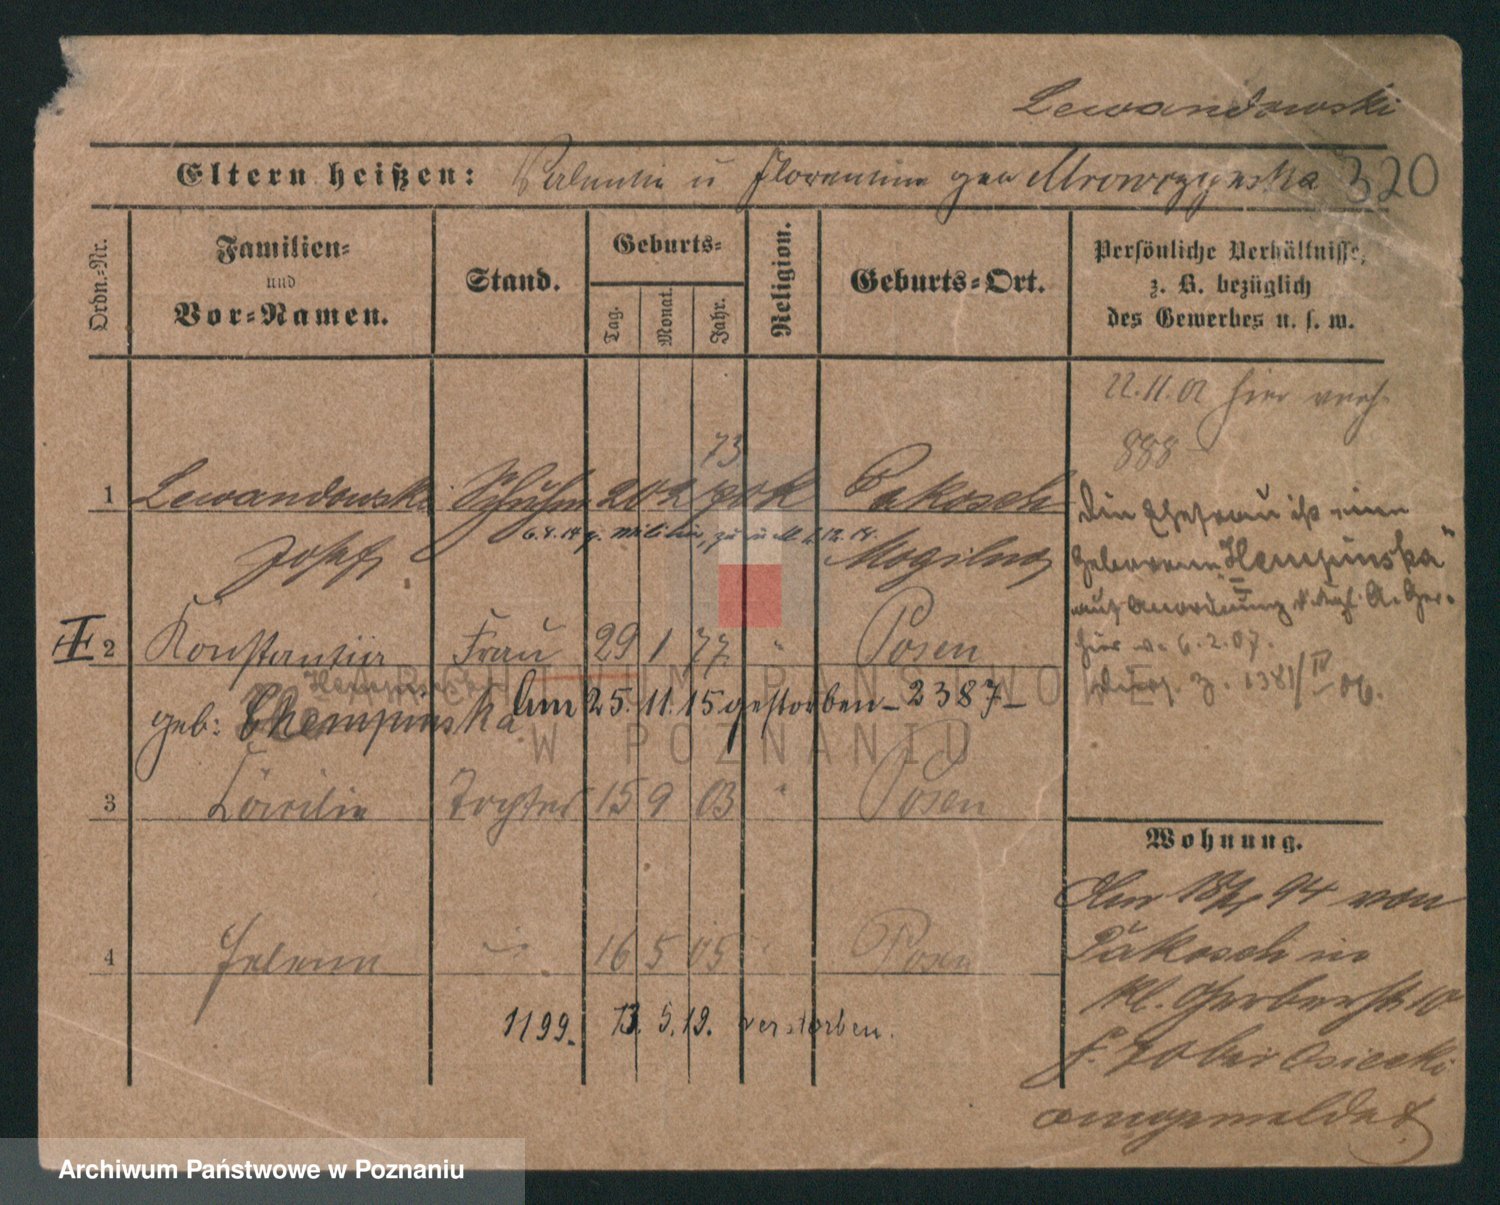 Lewandowski
Eltern heißen: Valentin u Florentine geb Mrowczynska 320
Ordn.-Nr.
Familien-
und
Vor-Namen.
Stand.
Geburts-
Tag. Monat. Jahr.
Religion.
Geburts-Ort.
Persönliche Verhältnisse,
z. B. bezüglich
des Gewerbes u. s. w.
22.11.02 hier verh.
888
73
1 Lewandowski Schuhm 20 2 70 k Pakosch
Josef Mogilno
6.8.14 z. Militär,
Die Ehefrau ist eine
geborene "Hempinska"
auf Anordnung
hier v. 6.2.07.
1381/IV 06.
II 2 Konstantia Frau 29 1 77 " Posen
Hempinska
geb: Chempinska Am 25.11.15 gestorben - 2387 -
3 Cäcilie Tochter 15 9 03 " Posen
4 Helene 16 5 05 Posen
1199. 13.5.19. verstorben.
Wohnung.
Am 18/4 94 von
Pakosch in
Kl. Gerberstr 10
b. Osiecki
angemeldet
ARCHIWUM PAŃSTWOWE
W POZNANIU
Archiwum Państwowe w Poznaniu